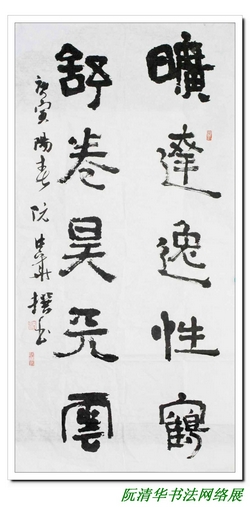 曠達逸性鶴
舒卷昊天雲
庚寅陽春阮清華撰書
阮清华书法网络展